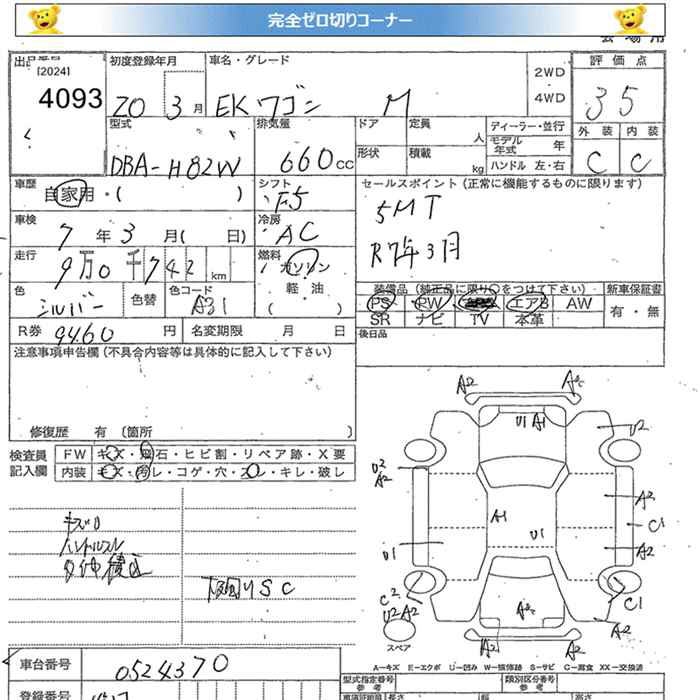 完全ゼロ切りコーナー
[2024]
4093
初度登録年月
20 3月
車名・グレード
EKワゴン M
2WD
4WD
評価点
3.5
外装 内装
C C
型式
DBA-H82W
排気量
660cc
ドア 定員 人
形状 積載 kg
ディーラー・並行
モデル年式 年
ハンドル 左・右
車歴
自家用・( )
シフト
F5
セールスポイント(正常に機能するものに限ります)
5MT
R7年3月
車検
7年3月( 日)
冷房
AC
走行
9万0千742km
燃料
ガソリン
軽・油
( )
色
シルバー
色替
色コード
A31
装備品(純正品に限り○をつけて下さい)
PS PW エアB AW
SR ナビ TV 本革
新車保証書
有・無
R券 9460円
名変期限 月 日
後日品
注意事項申告欄(不具合内容等は具体的に記入して下さい)
修復歴 有 〔箇所 〕
検査員
記入欄
FW キズ・飛石・ヒビ割・リペア跡・X要
内装 キズ・汚レ・コゲ・穴・コレ・キレ・破し
キズ凹
ハンドルスレ
下回りSC
A2
U1 A1
U2
U2
A2
A1
U1
A2
C1
A2
U1
C2
U2A2
C1
A2
A2
A2
スペア
A…キズ E…エクボ U…凹み W…補修跡 S…サビ C…腐食 XX…交換済
車台番号
0524370
登録番号
型式指定番号
参考
類別区分番号
参考